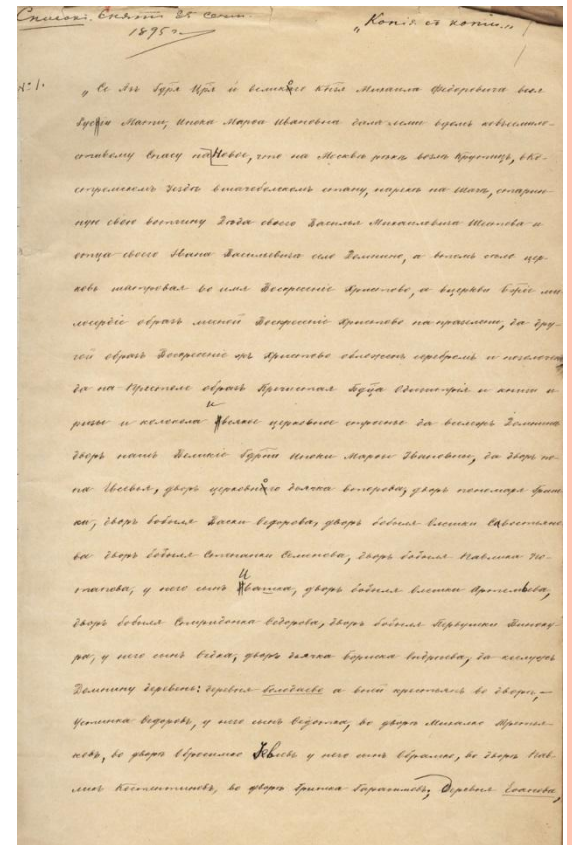 Списокъ. Снятъ 25 сент. "Копія съ копіи."
1895 г.
№ 1. „Се Азъ Гдря Цря и великого Кнзя Михаила Федоровича всея
Руссіи Мати, Инока Марѳа Ивановна дала есми вдомъ ковсемило-
стивому Спасу на Новое, что на Москвѣ рѣкѣ возлѣ Крутицъ, в Ко-
стромскомъ уѣздѣ стану, на рекѣ на Шачѣ, старин-
ную свою вотчину Дѣда своего Василья Михаиловича Шестова и
отца своего Ивана Васильевича село Домнино, а в томъ селѣ цер-
ковь во имя Воскресеніе Христово, а в церкви Божіе ми
лосердіе образъ мѣсной Воскресеніе Христово на празелени, да дру-
гой образъ Воскресеніе жъ Христово обложенъ серебромъ и позолоченъ
да на Престоле образъ Пречистая Бдца Одигитрія и книги и
ризы и колокола и всякое церковное строенье да в селѣжъ Домнинѣ
дворъ нашъ Великіе Гдрни Иноки Марѳы Ивановны, да дворъ по-
па Евсевья, дворъ церковного дьячка дворъ пономаря Гриш
ки, дворъ бобыля Васки Ѳедорова, дворъ бобыля Савостьяно
ва дворъ бобыля Степанки Семенова, дворъ бобыля Павлика По-
тапова; у него сынъ Ивашка, дворъ бобыля Артемьева,
дворъ бобыля Спиридонка Ѳедорова, дворъ бобыля Первушки Виноку-
ра, у него сынъ Ѳедка; дворъ дьячка Бориска да к селужъ
Домнину деревень: деревня а в ней крестьянъ во дворѣ, –
Устинка Ѳедоровъ, у него сынъ Ѳедотка, во дворѣ Михалко
новъ, во дворѣ у него сынъ Абрамко, во дворѣ Пав-
ликъ Костентиновъ, во дворѣ Гришка Гарасимовъ, Деревня